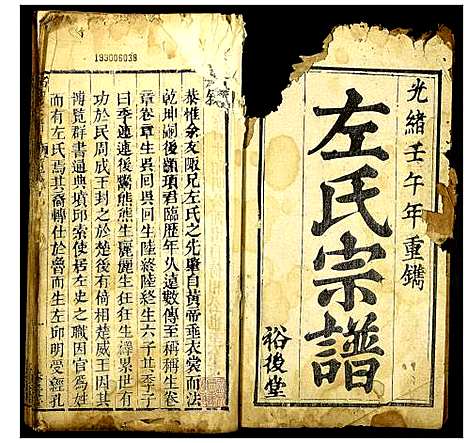 光緒壬午年重鐫
左氏宗譜
裕後堂
193006038
敘
恭惟余友陬兄左氏之先肇自黃帝垂衣裳而法
乾坤嗣後顓頊君臨歷年久遠數傳至稱稱生卷
章卷章生吳回吳回生陸終陸終生六子其季子
曰季連連後鬻熊熊生麗麗生狂狂生繹累世有
功於民周成王封之於楚後有倚相楚威王因其
博覽群書通典墳邱索使居左史之職因官為姓
而有左氏焉其裔轉仕於魯而生左邱明受經孔